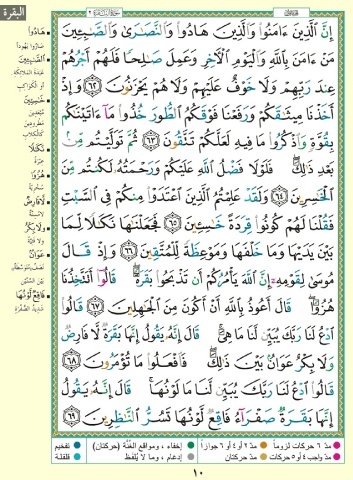 البقرة
إِنَّ ٱلَّذِينَ ءَامَنُوا۟ وَٱلَّذِينَ هَادُوا۟ وَٱلنَّصَٰرَىٰ وَٱلصَّٰبِـِٔينَ
مَنْ ءَامَنَ بِٱللَّهِ وَٱلْيَوْمِ ٱلْءَاخِرِ وَعَمِلَ صَٰلِحًا فَلَهُمْ أَجْرُهُمْ
عِندَ رَبِّهِمْ وَلَا خَوْفٌ عَلَيْهِمْ وَلَا هُمْ يَحْزَنُونَ ٦٢ وَإِذْ
أَخَذْنَا مِيثَٰقَكُمْ وَرَفَعْنَا فَوْقَكُمُ ٱلطُّورَ خُذُوا۟ مَآ ءَاتَيْنَٰكُم
بِقُوَّةٍ وَٱذْكُرُوا۟ مَا فِيهِ لَعَلَّكُمْ تَتَّقُونَ ٦٣ ثُمَّ تَوَلَّيْتُم مِّنۢ
بَعْدِ ذَٰلِكَ ۖ فَلَوْلَا فَضْلُ ٱللَّهِ عَلَيْكُمْ وَرَحْمَتُهُۥ لَكُنتُم مِّنَ
ٱلْخَٰسِرِينَ ٦٤ وَلَقَدْ عَلِمْتُمُ ٱلَّذِينَ ٱعْتَدَوْا۟ مِنكُمْ فِى ٱلسَّبْتِ
فَقُلْنَا لَهُمْ كُونُوا۟ قِرَدَةً خَٰسِـِٔينَ ٦٥ فَجَعَلْنَٰهَا نَكَٰلًا لِّمَا
بَيْنَ يَدَيْهَا وَمَا خَلْفَهَا وَمَوْعِظَةً لِّلْمُتَّقِينَ ٦٦ وَإِذْ قَالَ
مُوسَىٰ لِقَوْمِهِۦٓ إِنَّ ٱللَّهَ يَأْمُرُكُمْ أَن تَذْبَحُوا۟ بَقَرَةً ۖ قَالُوٓا۟ أَتَتَّخِذُنَا
هُزُوًا ۖ قَالَ أَعُوذُ بِٱللَّهِ أَنْ أَكُونَ مِنَ ٱلْجَٰهِلِينَ ٦٧ قَالُوا۟
ٱدْعُ لَنَا رَبَّكَ يُبَيِّن لَّنَا مَا هِىَ ۚ قَالَ إِنَّهُۥ يَقُولُ إِنَّهَا بَقَرَةٌ لَّا فَارِضٌ
وَلَا بِكْرٌ عَوَانٌۢ بَيْنَ ذَٰلِكَ ۖ فَٱفْعَلُوا۟ مَا تُؤْمَرُونَ ٦٨
قَالُوا۟ ٱدْعُ لَنَا رَبَّكَ يُبَيِّن لَّنَا مَا لَوْنُهَا ۚ قَالَ إِنَّهُۥ يَقُولُ
إِنَّهَا بَقَرَةٌ صَفْرَآءُ فَاقِعٌ لَّوْنُهَا تَسُرُّ ٱلنَّٰظِرِينَ ٦٩
هَادُوا
صَارُوا يَهُودًا
الصَّابِئِينَ
خَاسِئِينَ
نَكَالًا
عِبْرَةً
هُزُوًا
سُخْرِيَةً
لَا فَارِضٌ
وَلَا بِكْرٌ
عَوَانٌ
فَاقِعٌ لَوْنُهَا
شَدِيدُ الصُّفْرَةِ
مدّ ٦ حركات لزوماً
مدّ ٢ أو ٤ أو ٦ جوازاً
إخفاء، ومواقع الغُنَّة (حركتان)
تفخيم
مدّ واجب ٤ أو ٥ حركات
مدّ حركتان
إدغام، وما لا يُلفظ
قلقلة
١٠